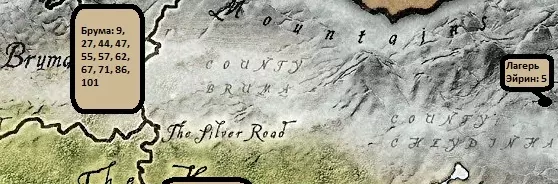 Mountains
Брума: 9,
27, 44, 47,
55, 57, 62,
67, 71, 86,
101
Bruma
COUNTY
BRUMA
Лагерь
Эйрин: 5
COUNTY
CHEYDINHA
The Silver Road
The